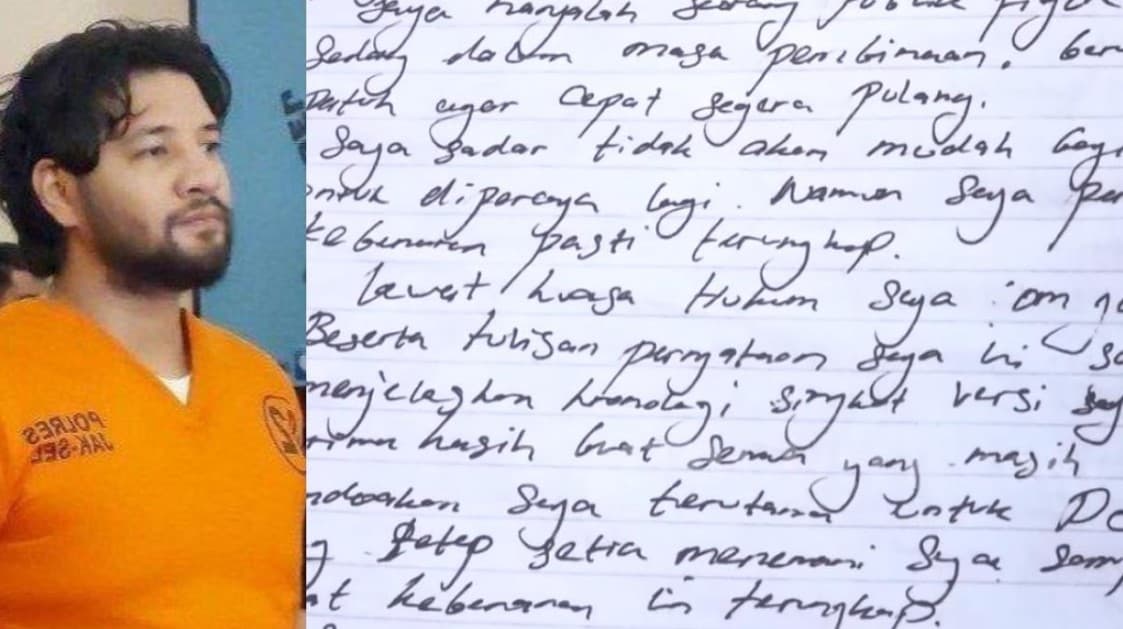 saya hanyalah seorang public figu
sedang dalam masa pembinaan. beru
patuh agar cepat segera pulang.
Saya sadar tidak akan mudah bagi
untuk dipercaya lagi. Namun saya per
kebenaran pasti terungkap.
Lewat kuasa Hukum saya om
Beserta tulisan pernyataan saya ini sa
menjelaskan kronologi singkat versi say
rima kasih buat semua yang masih
ndoakan saya terutama untuk De
g tetap setia menemani saya samp
at kebenaran ini terungkap.
POLRES
JAK-SEL